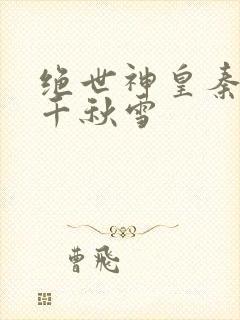 绝世神皇秦
千秋雪
曹飛